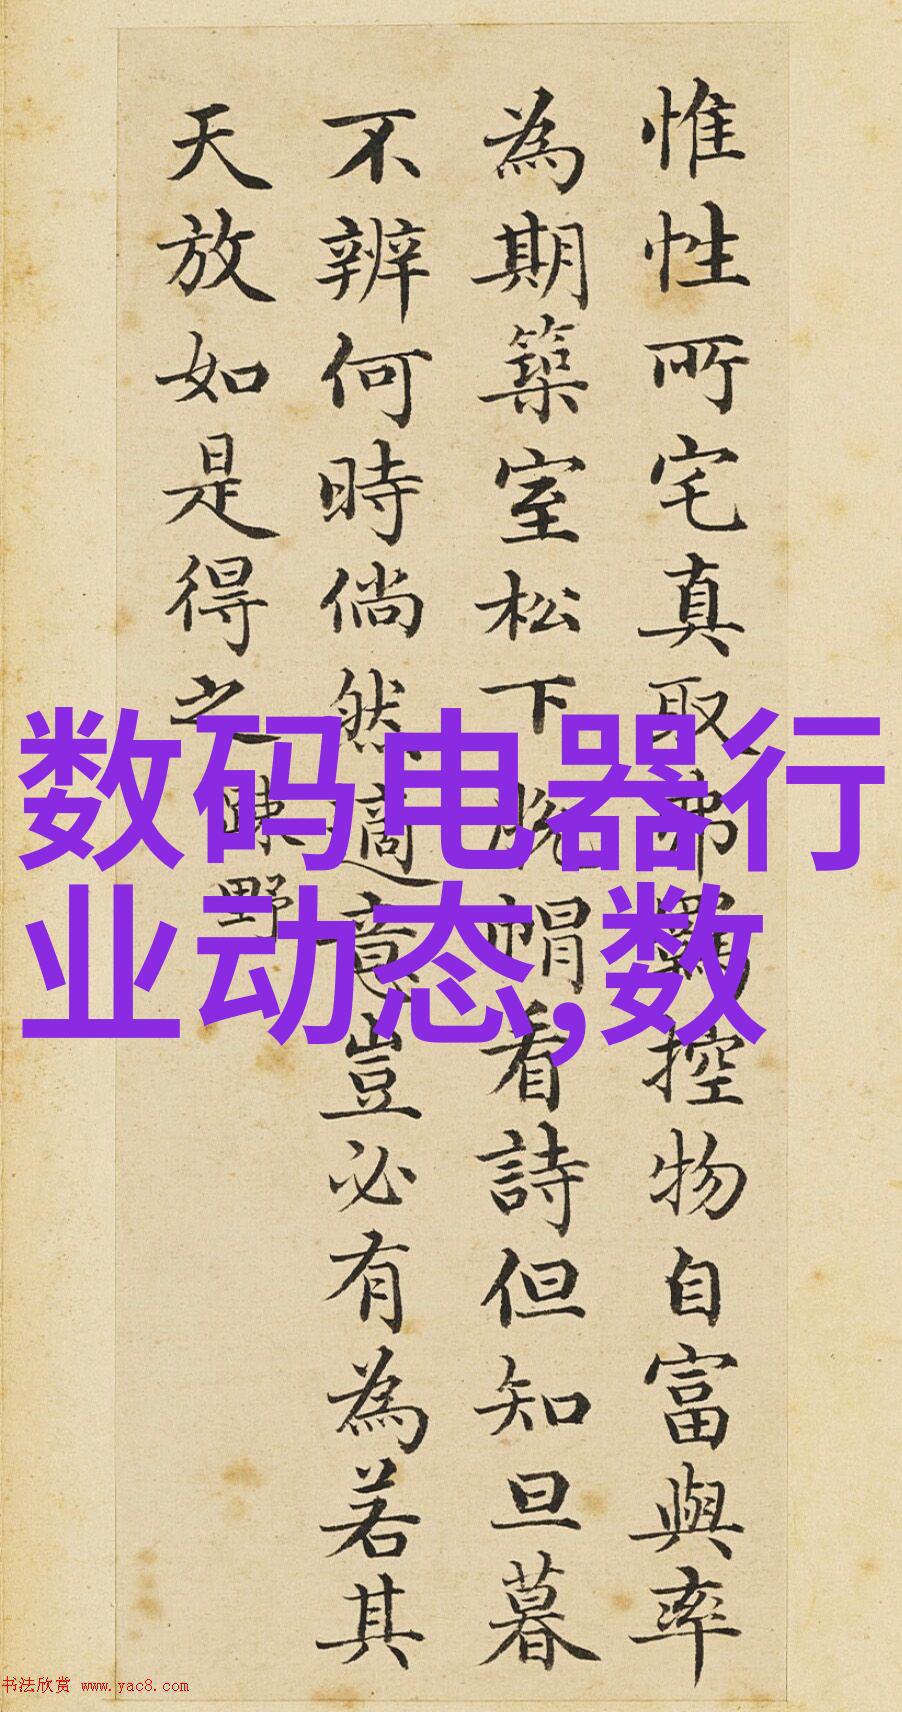 惟性所宅真取弗羈控物自富與率
為期築室松下脫帽看詩但知旦暮
不辨何時倘然適意豈必有為若其
天放如是得之
疎野
数码电器行
业动态,数
书法欣赏 www.yac8.com